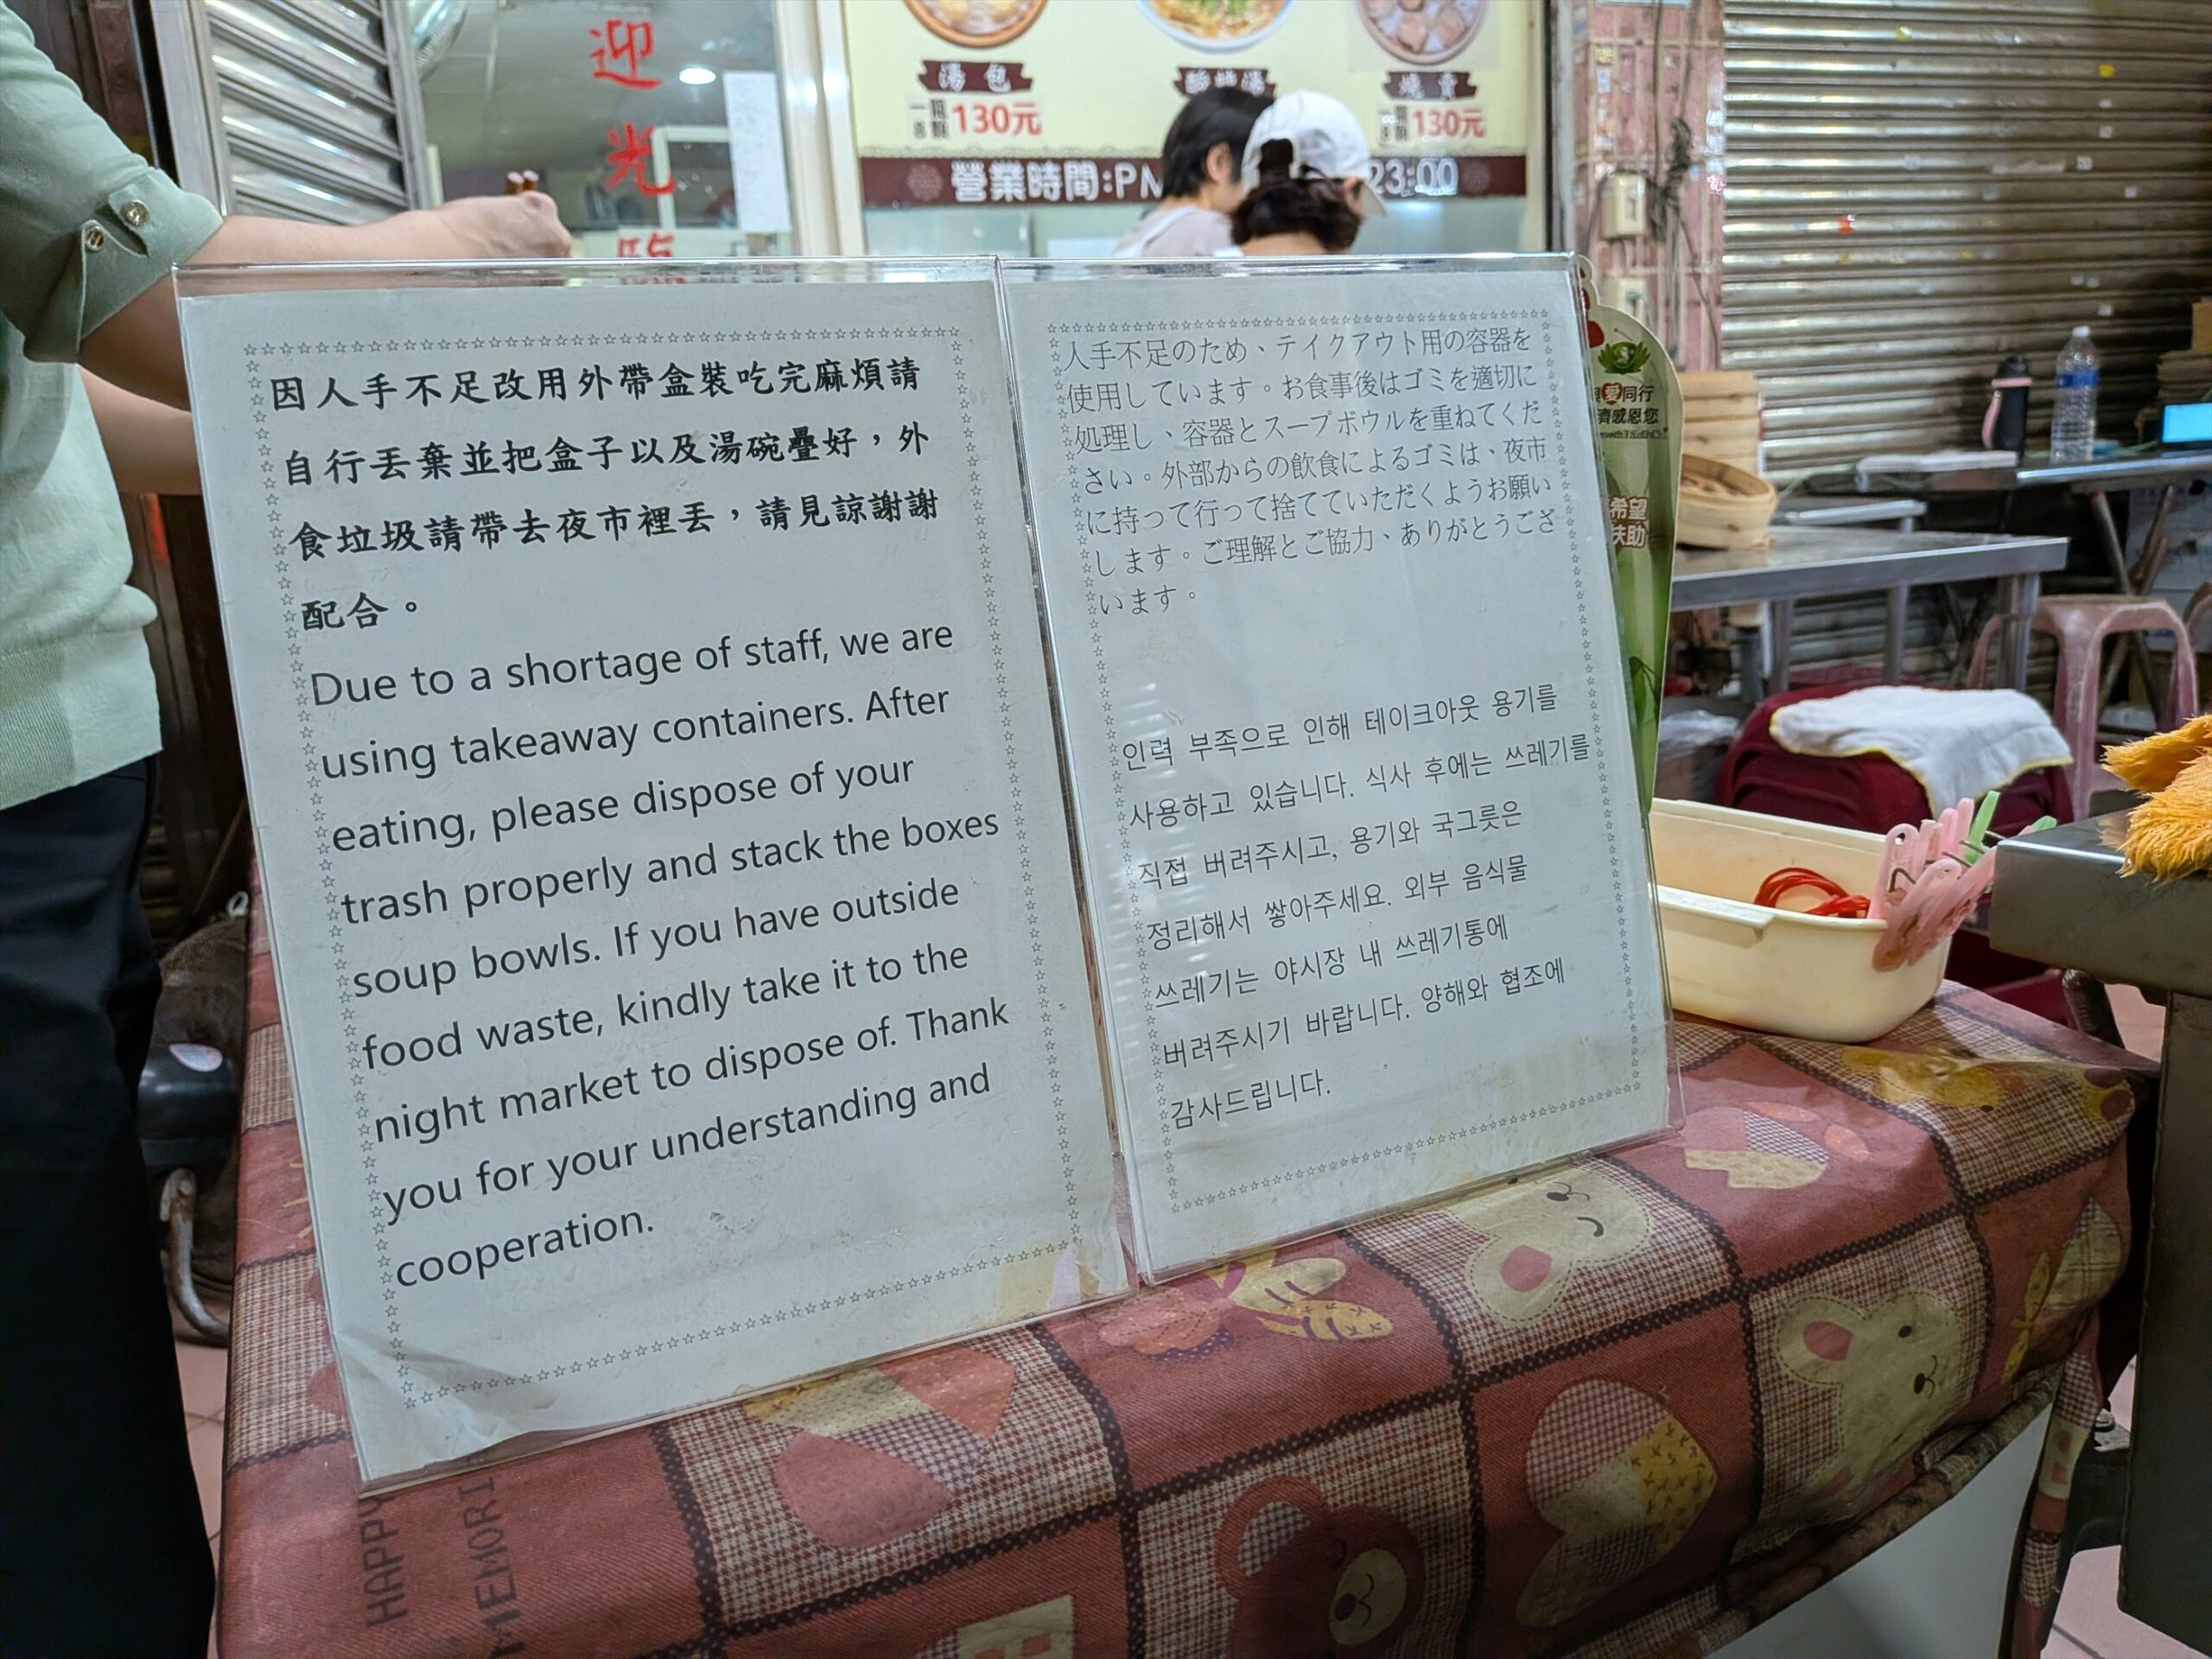 迎
光
臨
湯包
一籠
8顆
130元
酸辣湯
燒賣
一籠
8顆
130元
營業時間:PM
23:00
因人手不足改用外帶盒裝吃完麻煩請
自行丟棄並把盒子以及湯碗疊好，外
食垃圾請帶去夜市裡丟，請見諒謝謝
配合。
Due to a shortage of staff, we are
using takeaway containers. After
eating, please dispose of your
trash properly and stack the boxes
soup bowls. If you have outside
food waste, kindly take it to the
night market to dispose of. Thank
you for your understanding and
cooperation.
人手不足のため、テイクアウト用の容器を
使用しています。お食事後はゴミを適切に
処理し、容器とスープボウルを重ねてくだ
さい。外部からの飲食によるゴミは、夜市
に持って行って捨てていただくようお願い
します。ご理解とご協力、ありがとうござ
います。
인력 부족으로 인해 테이크아웃 용기를
사용하고 있습니다. 식사 후에는 쓰레기를
직접 버려주시고, 용기와 국그릇은
정리해서 쌓아주세요. 외부 음식물
쓰레기는 야시장 내 쓰레기통에
버려주시기 바랍니다. 양해와 협조에
감사드립니다.
愛同行
濟感恩您
希望
扶助
HAPPY
MEMORI